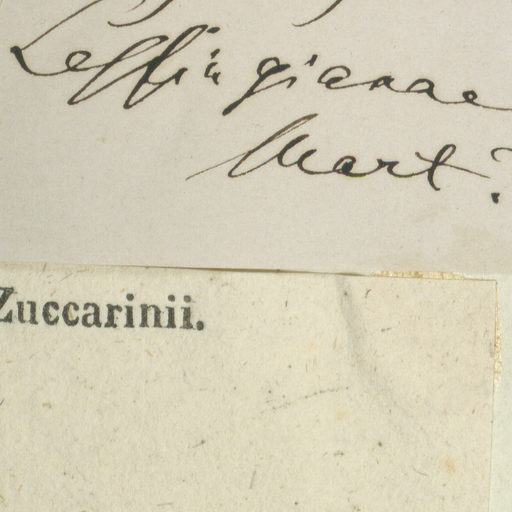 Leffingianae
Mart?
Zuccarinii.